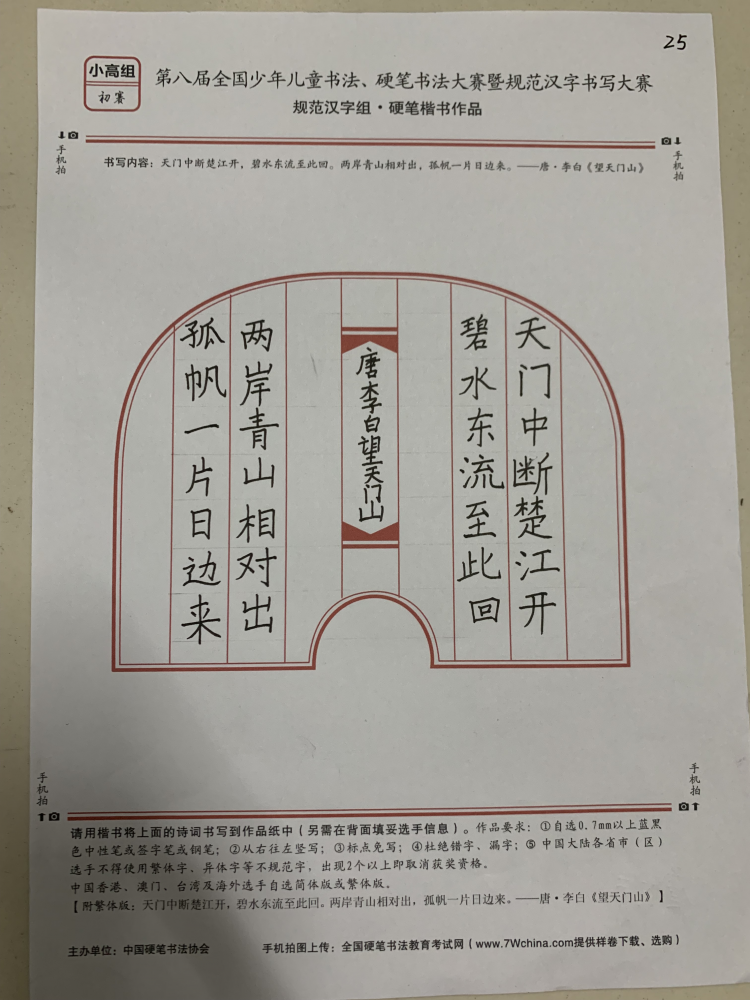 25
小高组
初赛
第八届全国少年儿童书法、硬笔书法大赛暨规范汉字书写大赛
规范汉字组·硬笔楷书作品
手机拍
手机拍
书写内容：天门中断楚江开，碧水东流至此回。两岸青山相对出，孤帆一片日边来。——唐·李白《望天门山》
天门中断楚江开
碧水东流至此回
唐李白望天门山
两岸青山相对出
孤帆一片日边来
手机拍
手机拍
请用楷书将上面的诗词书写到作品纸中（另需在背面填妥选手信息）。作品要求：①自选0.7mm以上蓝黑
色中性笔或签字笔或钢笔；②从右往左竖写；③标点免写；④杜绝错字、漏字；⑤ 中国大陆各省市（区）
选手不得使用繁体字、异体字等不规范字，出现2个以上即取消获奖资格。
中国香港、澳门、台湾及海外选手自选简体版或繁体版。
【附繁体版：天门中断楚江开，碧水东流至此回。两岸青山相对出，孤帆一片日边来。——唐·李白《望天门山》】
主办单位：中国硬笔书法协会
手机拍图上传：全国硬笔书法教育考试网（www.7Wchina.com提供样卷下载、选购）